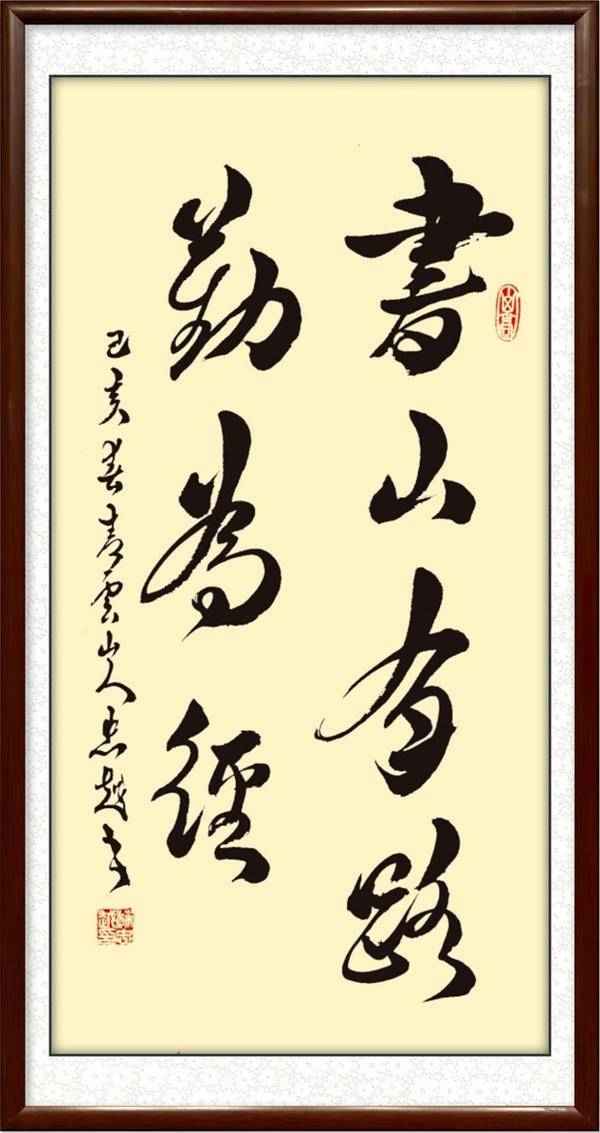 書山有路
勤為徑
己亥春青雲山人忠越书